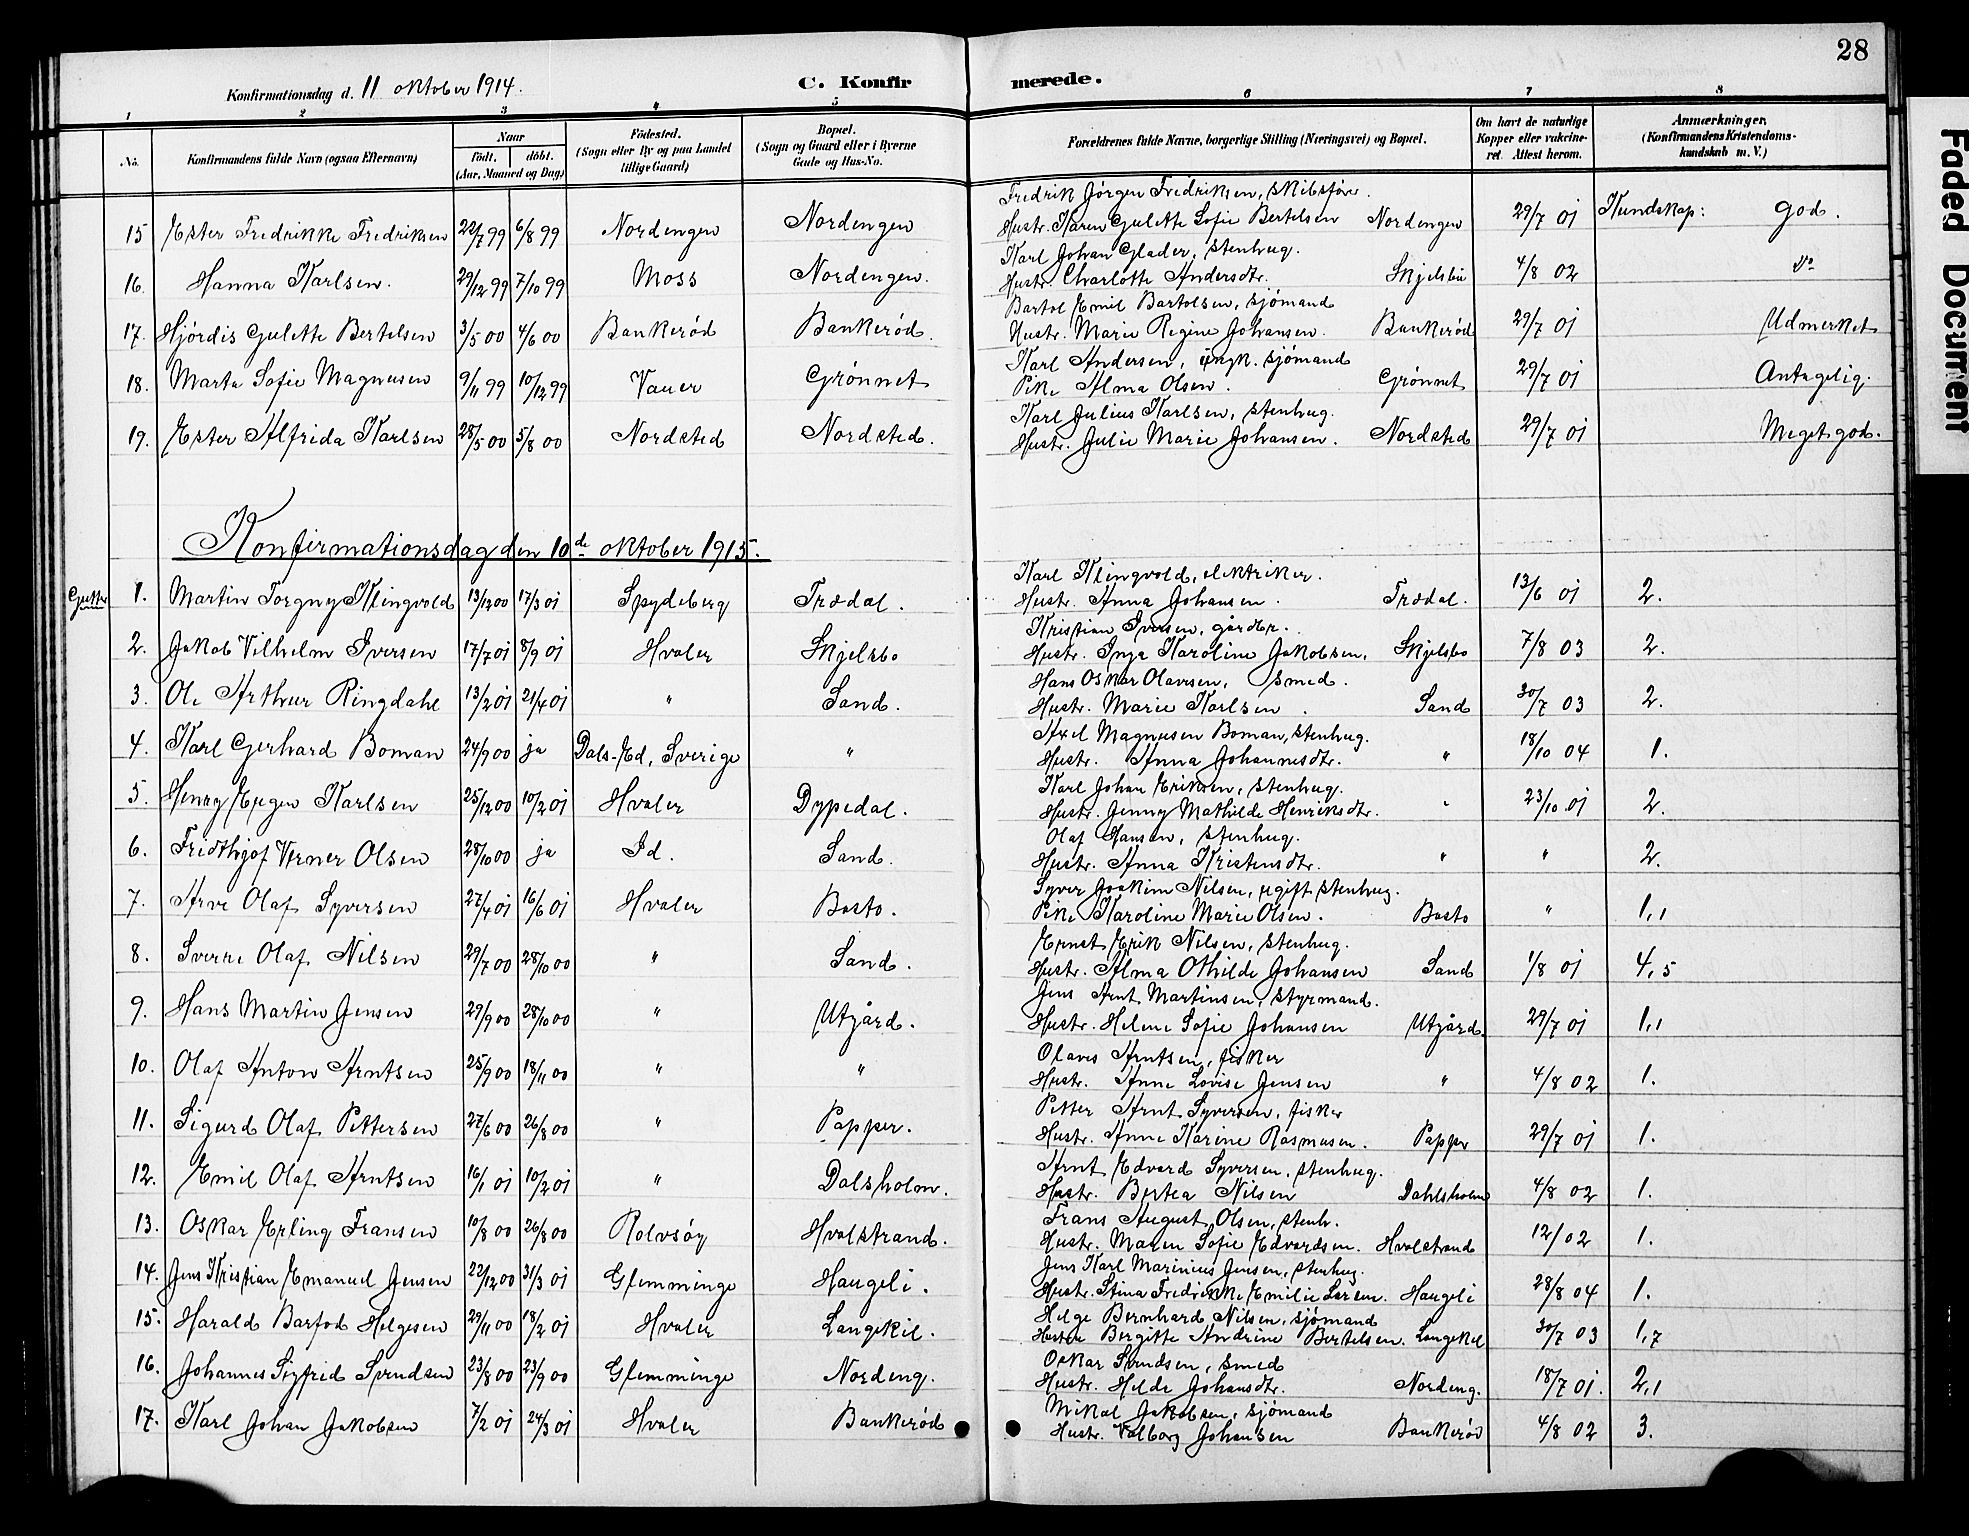 28
Konfirmationsdag d. 11 oktober 1914.
C. Konfirmerede.
1 2 3 4 5 6 7 8
No. Konfirmandens fulde Navn (ogsaa Efternavn) Naar født. døbt. (Aar, Maaned og Dag) Fødested. (Sogn eller By og paa Landet tillige Gaard) Bopæl. (Sogn og Gaard eller i Byerne Gade og Hus-No. Forældrenes fulde Navne, borgerlige Stilling (Næringsvei) og Bopæl. Om havt de naturlige Kopper eller vakcineret Attest herom. Anmærkninger. (Konfirmandens Kristendomskundskab m. V.)
Fredrik Jørgen Fredriksen, skibsfører.
15 Ester Fredrikke Fredriksen 22/7 99 6/8 99 Nordengen Nordengen Hustr. Karen Gulette Sofie Bertelsen Nordengen 29/7 01 Kundskap: god.
Karl Johan Glader, stenhug.
16. Hanna Karlsen. 29/12 99 7/10 99 Moss Nordengen. Hustr. Charlotte Andersdtr. Skjelsbu 4/8 02 do
Bartol Emil Bartolsen, sjømand
17. Hjørdis Gulette Bertelsen 3/5 00 4/6 00 Bankerød Bankerød. Hustr. Marie Regine Johansen. Bankerød 29/7 01 Udmerket
Karl Andersen, ungk. sjømand
18. Marta Sofie Magnusen 9/11 99 10/12 99 Vauer Grønnet Pike Alma Olsen. Grønnet 29/7 01 Antagelig.
Karl Julius Karlsen, stenhug.
19. Ester Alfrida Karlsen 28/5 00 5/8 00 Nordsted Nordsted. Hustr. Julie Marie Johansen. Nordsted 29/7 01 Meget god.
Konfirmationsdag den 10de oktober 1915.
Karl Klingvold, elektriker.
Gutter 1. Martin Torgny Klingvold 13/12 00 17/3 01 Spydeberg Trødal. Hustr. Anna Johansen. Trødal. 13/6 01 2.
Kristian Iversen, gårdbr.
2. Jakob Vilhelm Iversen 17/7 01 8/9 01 Hvaler Skjelsbo Hustr. Inga Karoline Jakobsen. Skjelsbo 7/8 03 2.
Hans Oskar Olavesen, smed.
3. Ole Arthur Ringdahl 13/2 01 21/4 01 " Sand. Hustr. Marie Karlsen. Sand 30/7 03 2.
Axel Magnusen Boman, stenhug.
4. Karl Gerhard Boman 24/9 00 ja Dals-Ed, Sverige " Hustr. Anna Johannesdtr. " 18/10 04 1.
Karl Johan Eriksen, stenhug.
5. Henry Eugen Karlsen 25/12 00 10/2 01 Hvaler Dypedal. Hustr. Jenny Mathilde Henriksdtr. " 23/10 01 2.
Olaf Hansen, stenhug.
6. Fridthjof Verner Olsen 28/10 00 ja Id. Sand. Hustr. Anna Kristensdtr. " " 2.
Syver Joakim Nilsen, ugift stenhug.
7. Arve Olaf Syversen 27/4 01 16/6 01 Hvaler Basto. Pike Karoline Marie Olsen. Basto " 1,1
Ernst Erik Nilsen, stenhug.
8. Sverre Olaf Nilsen 29/7 00 28/10 00 " Sand. Hustr. Alma Othilde Johansen Sand 1/8 01 4,5
Jens Arnt Martinsen, styrmand.
9. Hans Martin Jensen 29/9 00 28/10 00 " Utgård. Hustr. Helene Sofie Johansen Utgård. 29/7 01 1,1
Olaves Arntsen, fisker
10. Olaf Anton Arntsen 25/9 00 18/11 00 " " Hustr. Anne Lovise Jensen " 4/8 02 1.
Petter Arnt Syversen, fisker
11. Sigurd Olaf Pettersen 27/6 00 26/8 00 " Papper. Hustr. Anne Karine Rasmusen. Papper 29/7 01 1.
Arnt Edvard Syversen, stenhug.
12. Emil Olaf Arntsen 16/1 01 10/2 01 " Dalsholm. Hustr. Bertea Nilsen Dahlsholm 4/8 02 1.
Frans August Olsen, stenh.
13. Oskar Erling Fransen 10/8 00 26/8 00 Rolvsøy Hvalstrand. Hustr. Maren Sofie Edvardsen. Hvalstrand 12/02 1.
Jens Karl Marinius Jensen, stenhug.
14. Jens Kristian Emanuel Jensen 22/12 00 31/3 01 Glemminge Haugeli. Hustr. Stina Fredrikke Emilie Larsen. Haugeli 28/8 04 1.
Helge Bernhard Nilsen, sjømand
15. Harald Barfod Helgesen 29/11 00 18/2 01 Hvaler Langekil. Hustru Bergitte Andrine Bertelsen. Langekil 30/7 03 1,7
Oskar Svendsen, smed
16. Johannes Sigfrid Svendsen 23/8 00 23/9 00 Glemminge Nordeng. Hustr. Helde Johansdtr. Nordeng. 18/7 01. 2,1
Mikal Jakobsen, sjømand
17. Karl Johan Jakobsen 7/2 01 24/3 01 Hvaler Bankerød Hustr. Valborg Johansen Bankerød 4/8 02 3.
Faded Document